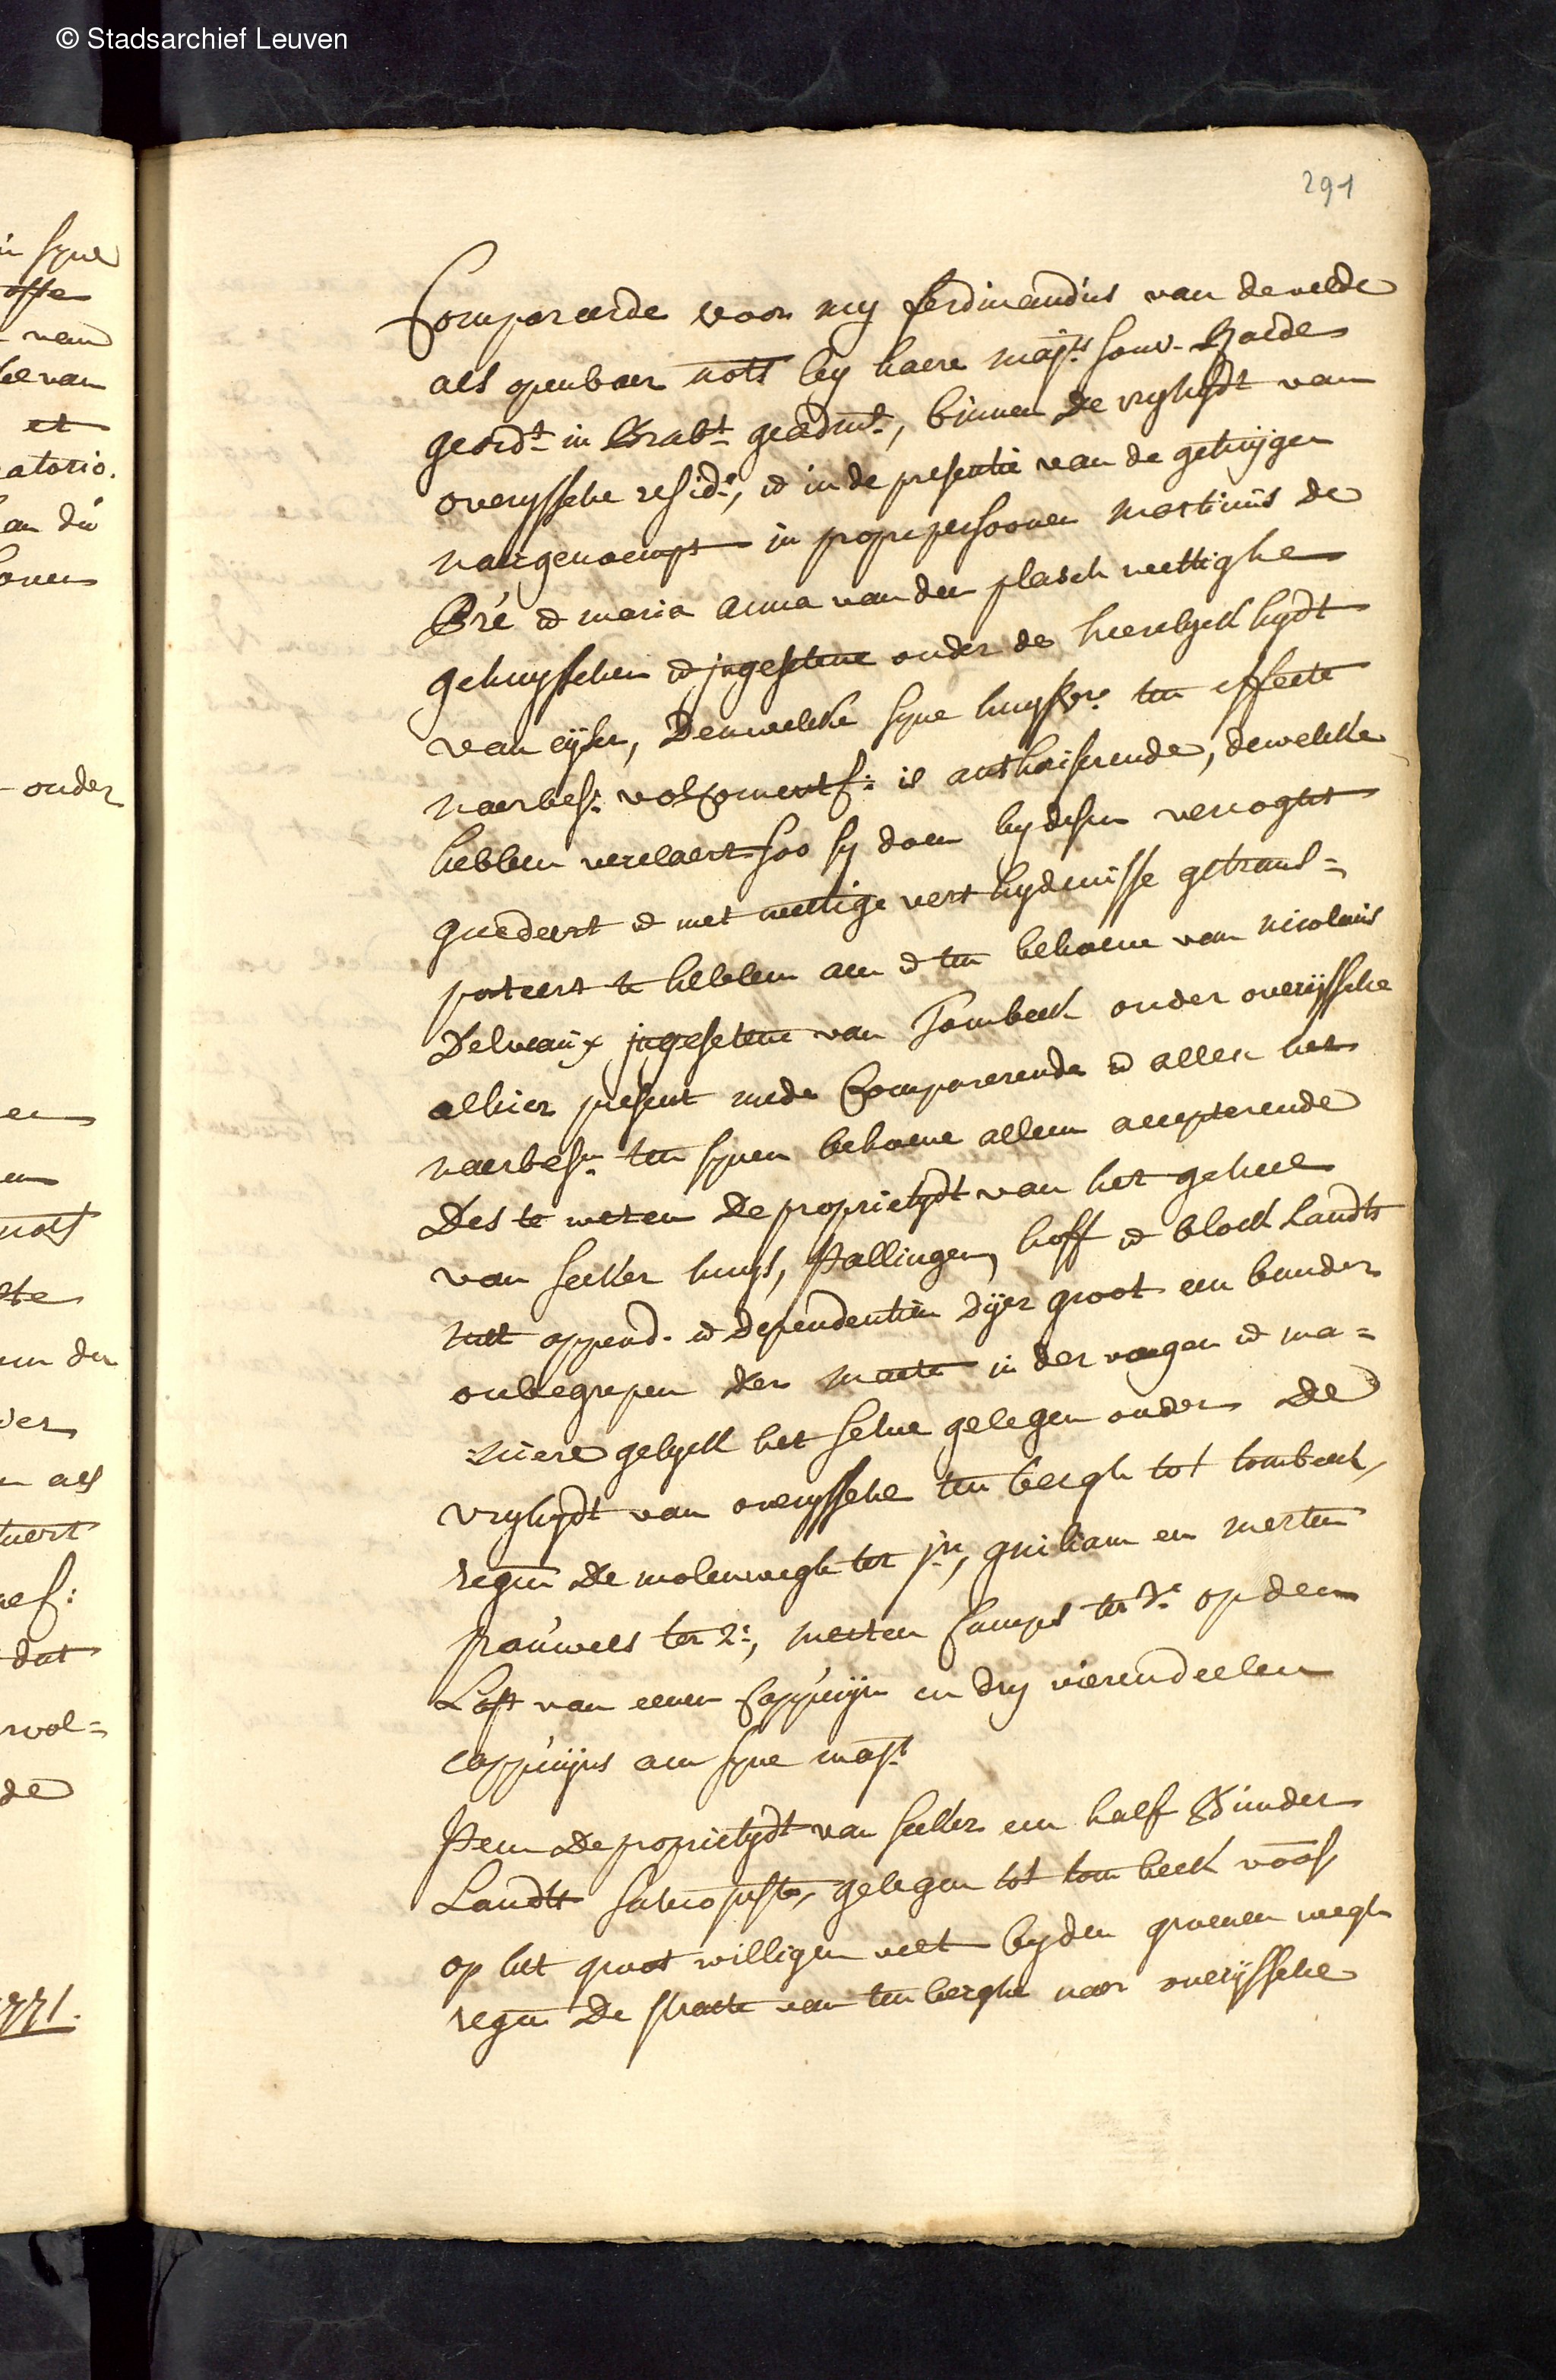 © Stadsarchief Leuven
291
Compareerde voor my ferdinandus van de velde
als openbaer nots by haere majts souv. Raede
geordt in Brabt geadmt, binnen de vryhydt van
overyssche residt, en in de presentie van de getuijgen
naergenoempt in propre persoonen Martinus de
Bré en maria anna van der plasch wettighe
gehuysschen en jngesetene onder de heerelyckhydt
van eijser, Denwelcke syne huysvre ten effecte
naerbes: volcomentl: is authoriserende, dewelcke
hebben verclaert soo sy doen by desen vercoght
gecedeert en met wettige vert hydenisse getrans=
porteert te hebben aen en ten behoeve van nicolaus
Delveaux jngesetene van Tombeek onder overijssche
alhier present mede Comparerende en allen het
naerbesn ten synen behoeve alleen accepterende
Des te weten de proprietydt van het geheel
van seeker huys, stallingen, hoff en block Landts
mett append. en dependentien dijer groot een bunder
onbegrepen der maete in der voegen en ma=
niere gelyck het selve gelegen onder de
vryhydt van overyssche ten bergh tot tombeek,
regen de molenwegh ter jre, guiliam en merten
pauwels ter 2e, merten Camps ter 3e op den
Last van eenen cappuijn en dry vierendeelen
cappuijns aen syne mast
Item de proprietydt van seeker een half Bunder
Landts salvo justo, gelegen tot tombeek voors
op het groot willigen velt by den groenen wegh
regen de straete van ten berghe naer overijssche